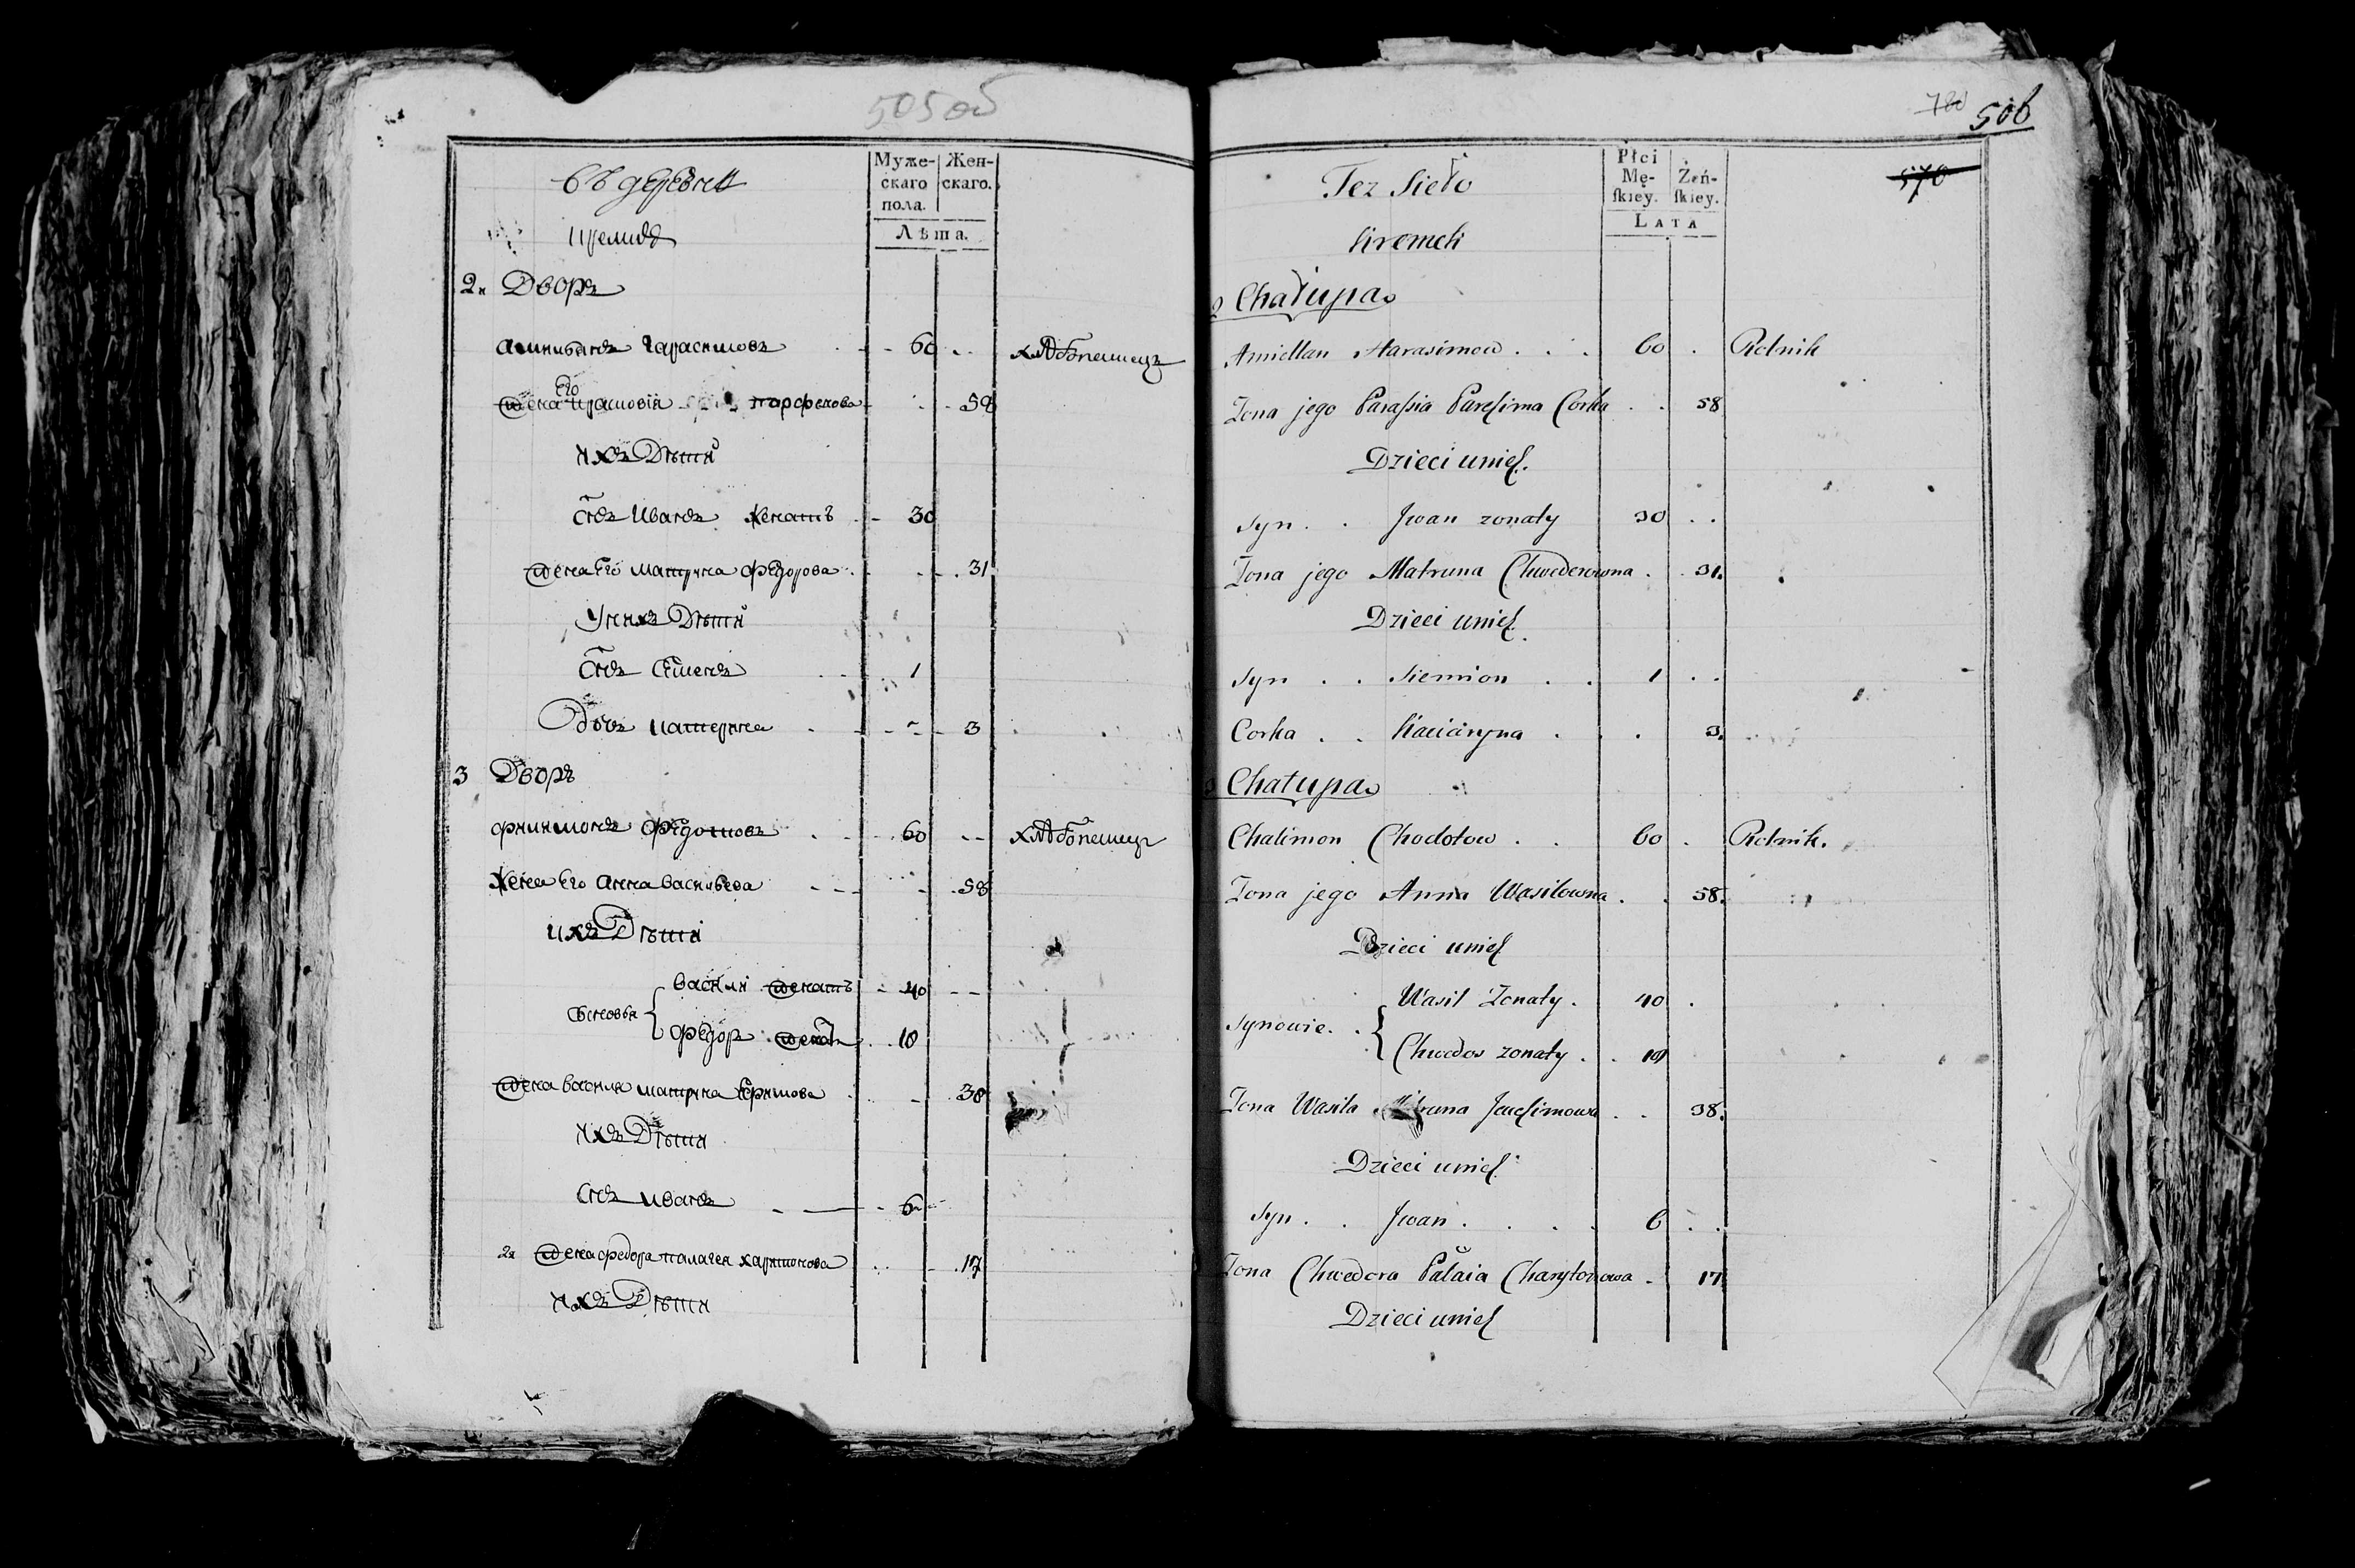 505об
въ деревни
Муже-
скаго
пола.
Жен-
скаго.
Лѣта.
2. Дворъ
Гарасимовъ 60 хлѣбопашецъ
жена Его Парфенова 58
ихъ Дѣти
снъ Иванъ женатъ 30
жена Его Матруна Федорова 31
У нихъ Дѣти
снъ Семенъ 1
Дочь Катерина 3
3 Дворъ
Филимонъ Федотовъ 60 хлѣбопашецъ
Жена Его Анна Васильева 58
ихъ Дѣти
Сыновья { Василій женатъ 40
Федоръ женатъ 18
жена Василія Матруна 38
ихъ Дѣти
снъ Иванъ 6
2я жена Федора Палагея Харитонова 17
ихъ Дѣти
780 506
570
Tez Sieło
Kremeli
Płci
Mę-
ſkiey.
Żeń-
ſkiey.
LATA
2 Chałupa
Amiellan Harasimow 60 Rolnik
Zona jego Paraſsia Corka 58
Dzieci unieſ.
Syn Jwan zonaty 30
Zona jego Matruna Chwederowna 31.
Dzieci unieſ.
Syn Siemion 1
Corka Kaciaryna 3.
3 Chałupa
Chalimon Chodotow 60 Rolnik.
Zona jego Anna Wasilowna 58.
Dzieci unieſ
Synowie { Wasil Zonaty 40
Chwedor zonaty 18
Zona Wasila 38.
Dzieci unieſ
Syn Jwan 6
Zona Chwedora Palaia Charytonowa 17
Dzieci unieſ